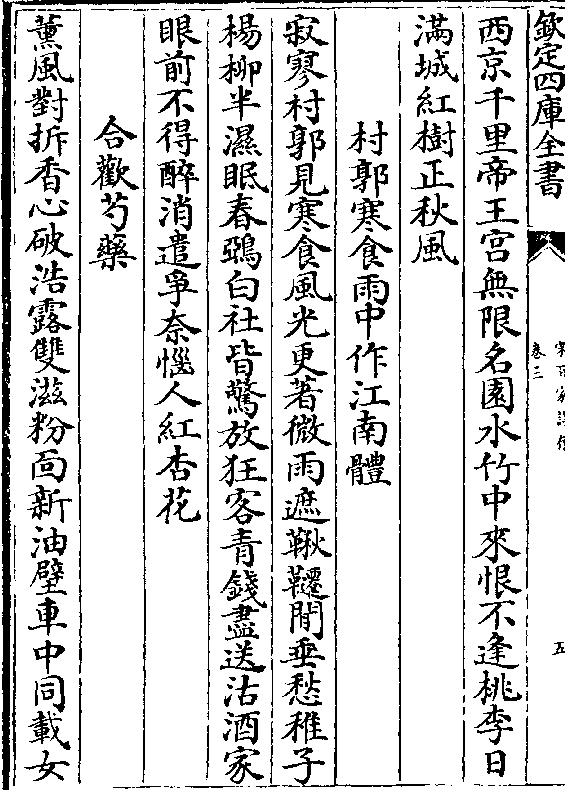 欽定四庫全書
宋百家詩存
卷三
五
西京千里帝王宫無限名園水竹中來恨不逢桃李日
滿城紅樹正秋風
村郭寒食雨中作江南體
寂寥村郭見寒食風光更著微雨遮鞦韆閒垂愁稚子
楊柳半濕眠春鵶白社皆驚放狂客青錢盡送沽酒家
眼前不得醉消遣爭奈惱人紅杏花
合歡芍藥
薰風對拆香心破浩露雙滋粉面新油壁車中同載女